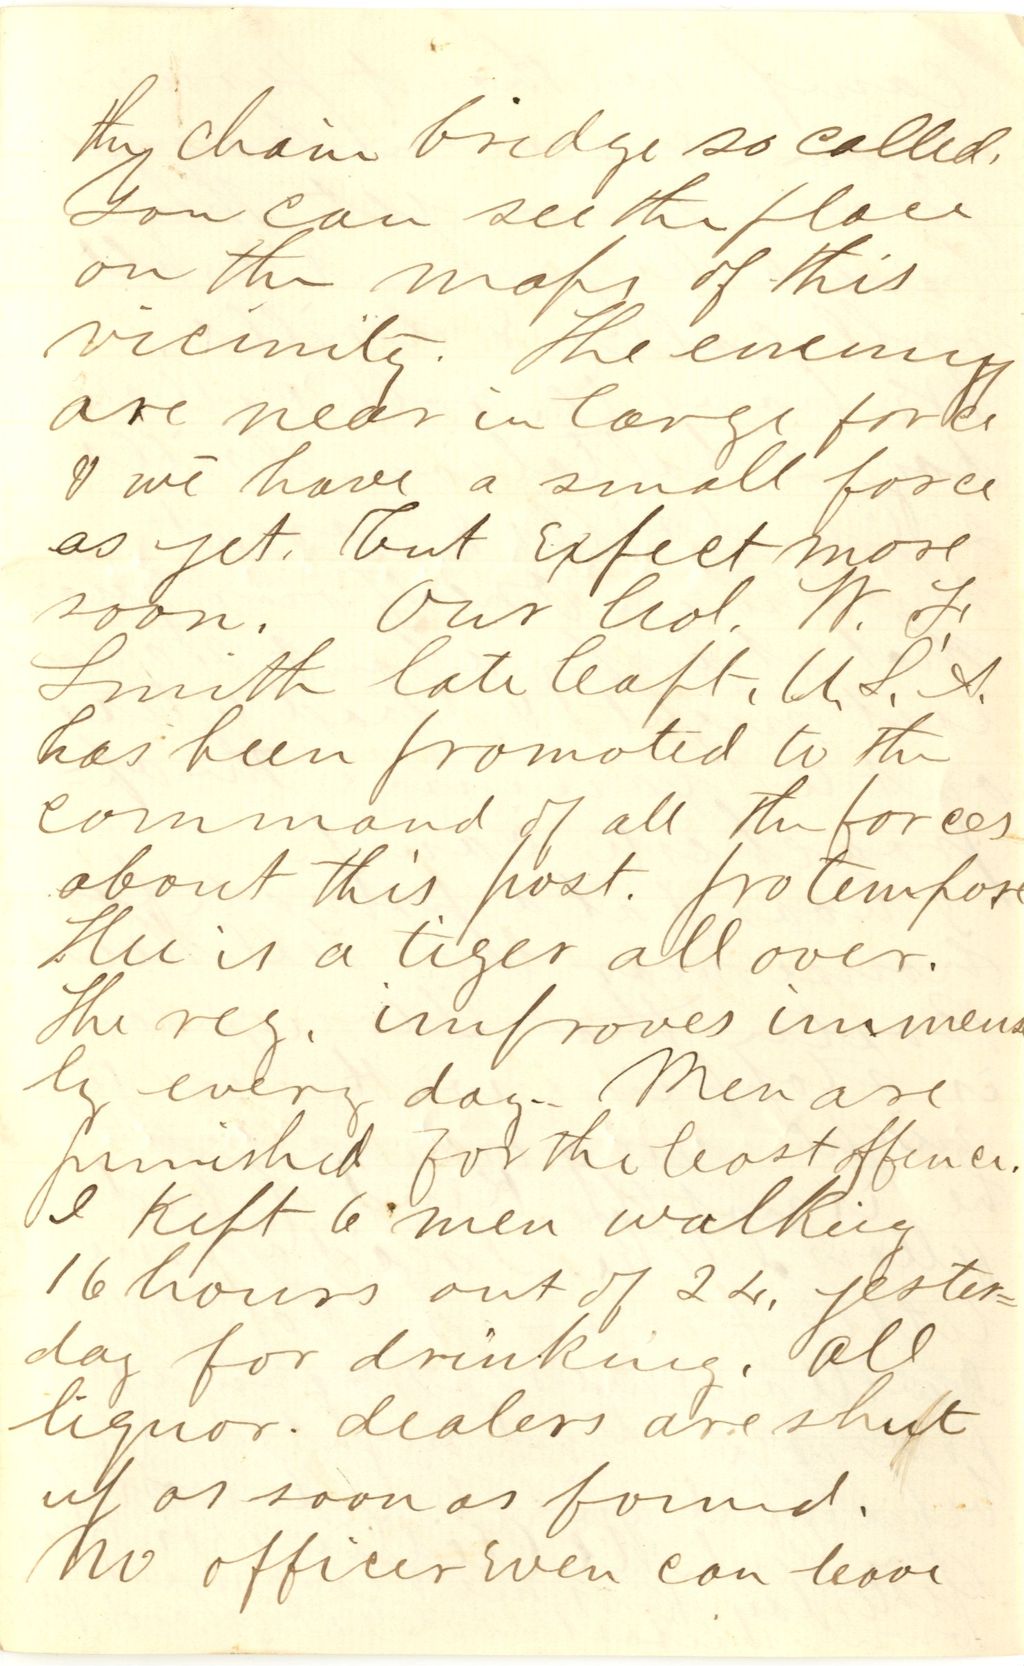 the chain bridge so called.
You can see the place
on the maps of this
vicinity. The enemy
are near in large force
& we have a small force
as yet. but expect more
soon. Our Col. W. F.
Smith late Capt. U. S. A.
has been promoted to the
command of all the forces
about this post. pro tempore
He is a tiger all over.
The reg. improves immens
ly every day - Men are
punished for the least offence.
I kept 6 men walking
16 hours out of 24, yester=
day for drinking. All
liquor. dealers are shut
up as soon as found.
No officer even can leave